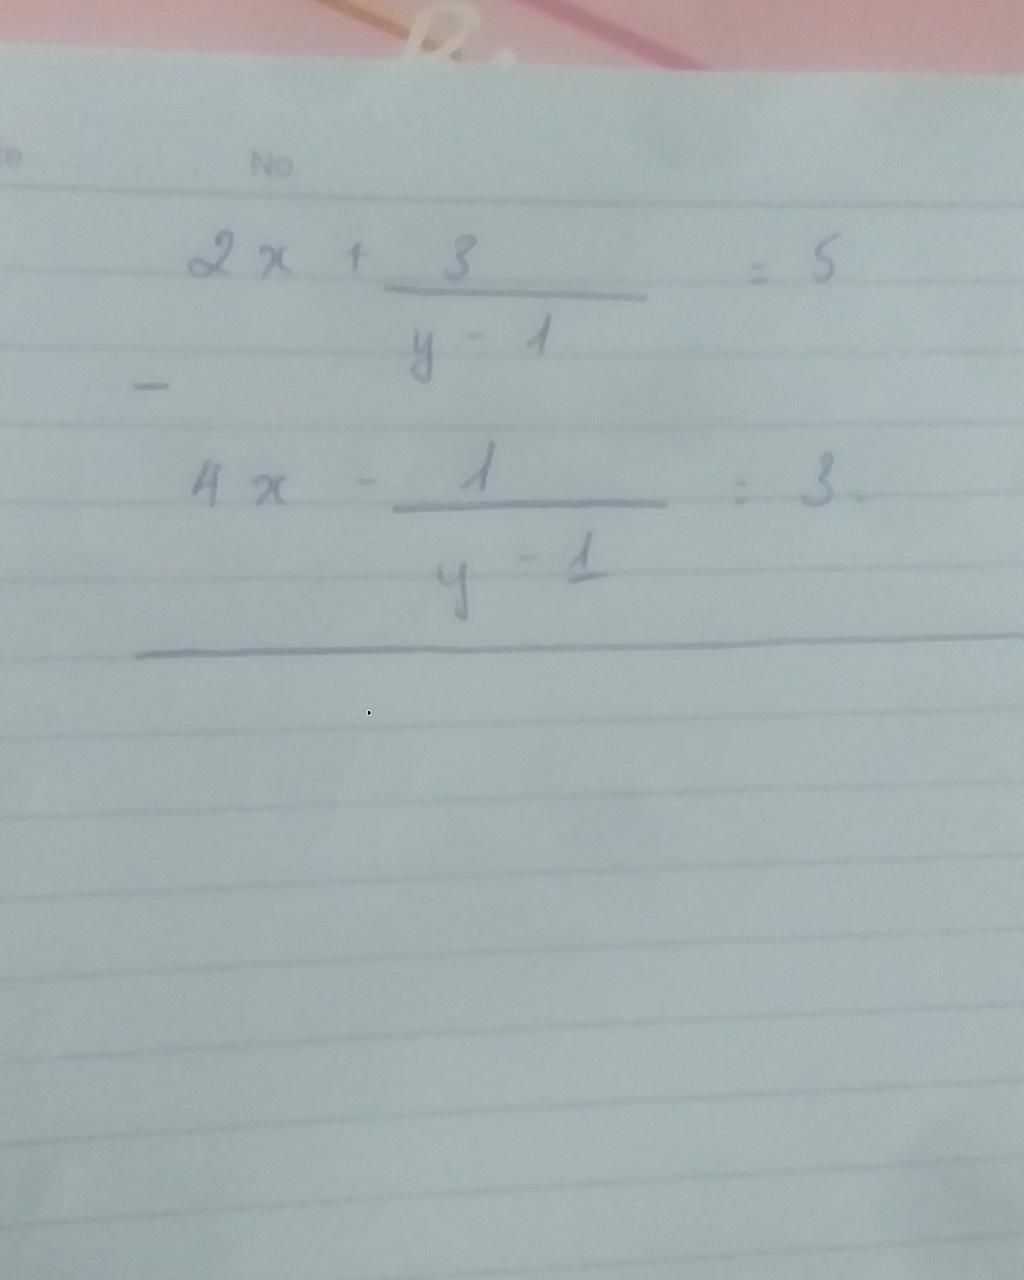 No
2x + 3 = 5
y - 1
-
4x - 1 = 3.
y - 1